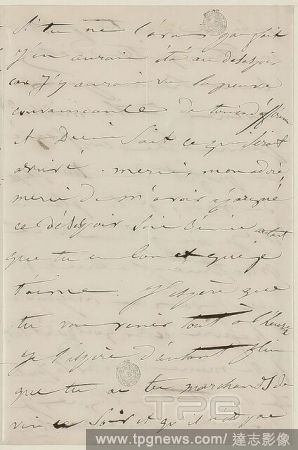 Si tu ne l'avais pas fait
j'en aurais été au désespoir
car j'y aurais vu la preuve
de ton indifférence
et Dieu sait ce qui serait
arrivé. merci, mon adoré,
merci de m'avoir épargné
ce désespoir. Sois béni autant
que tu es bon et que je
t'aime. J'espère que
tu vas venir tout à l'heure
je l'espère d'autant plus
que tu as tes marchands de
vin ce soir et qu'il
TPG
www.tpgnews.com / 達志影像